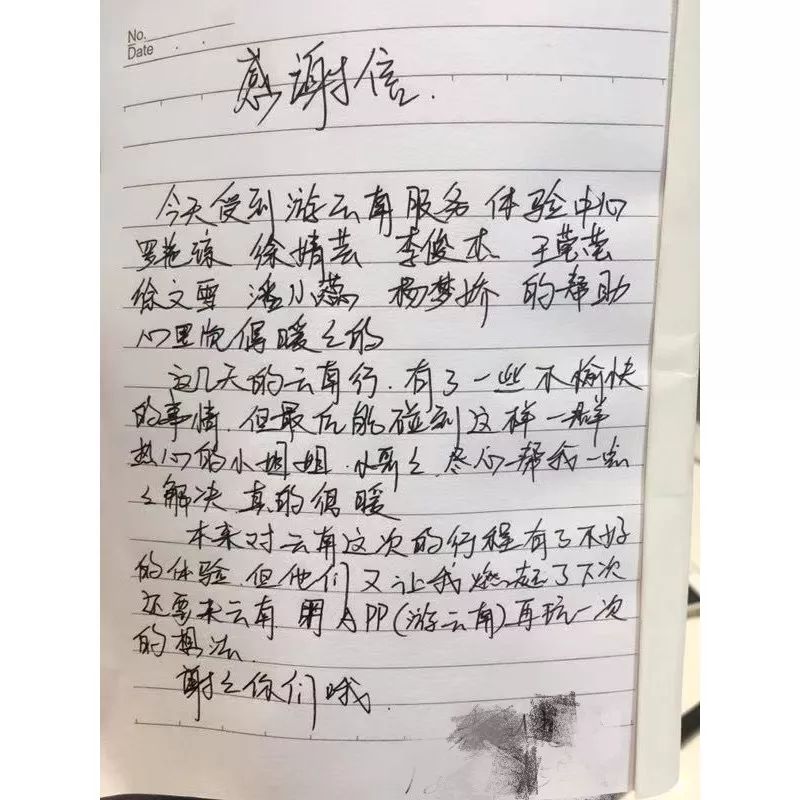 No.
Date
感谢信.
今天受到 游云南服务 体验中心
罗艳 徐婧芸 李俊杰 王莹莹
徐文雪 潘小 杨梦娇 的帮助
心里觉得暖々的
这几天的云南行.有了一些不愉快
的事情.但最后能碰到这样一群
热心的小姐姐.小哥々.尽心帮我一点
々解决 真的很暖
本来对云南这次的行程有了不好
的体验 但他们又让我燃起了下次
还要来云南 用APP(游云南)再玩一次
的想法.
谢々你们哦.